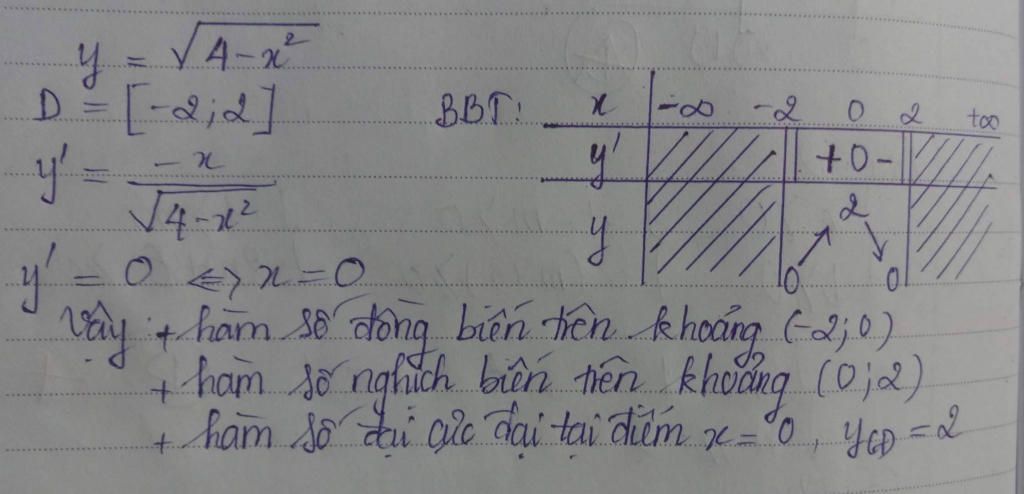 y = √(4-x²)
D = [-2; 2]
y' = -x / √(4-x²)
y' = 0 ⇔ x = 0
BBT: x -∞ -2 0 2 +∞
y' + 0 -
y 0 ↗ 2 ↘ 0
Vậy: + hàm số đồng biến trên khoảng (-2; 0)
+ hàm số nghịch biến trên khoảng (0; 2)
+ hàm số đại cực đại tại điểm x = 0, yCĐ = 2